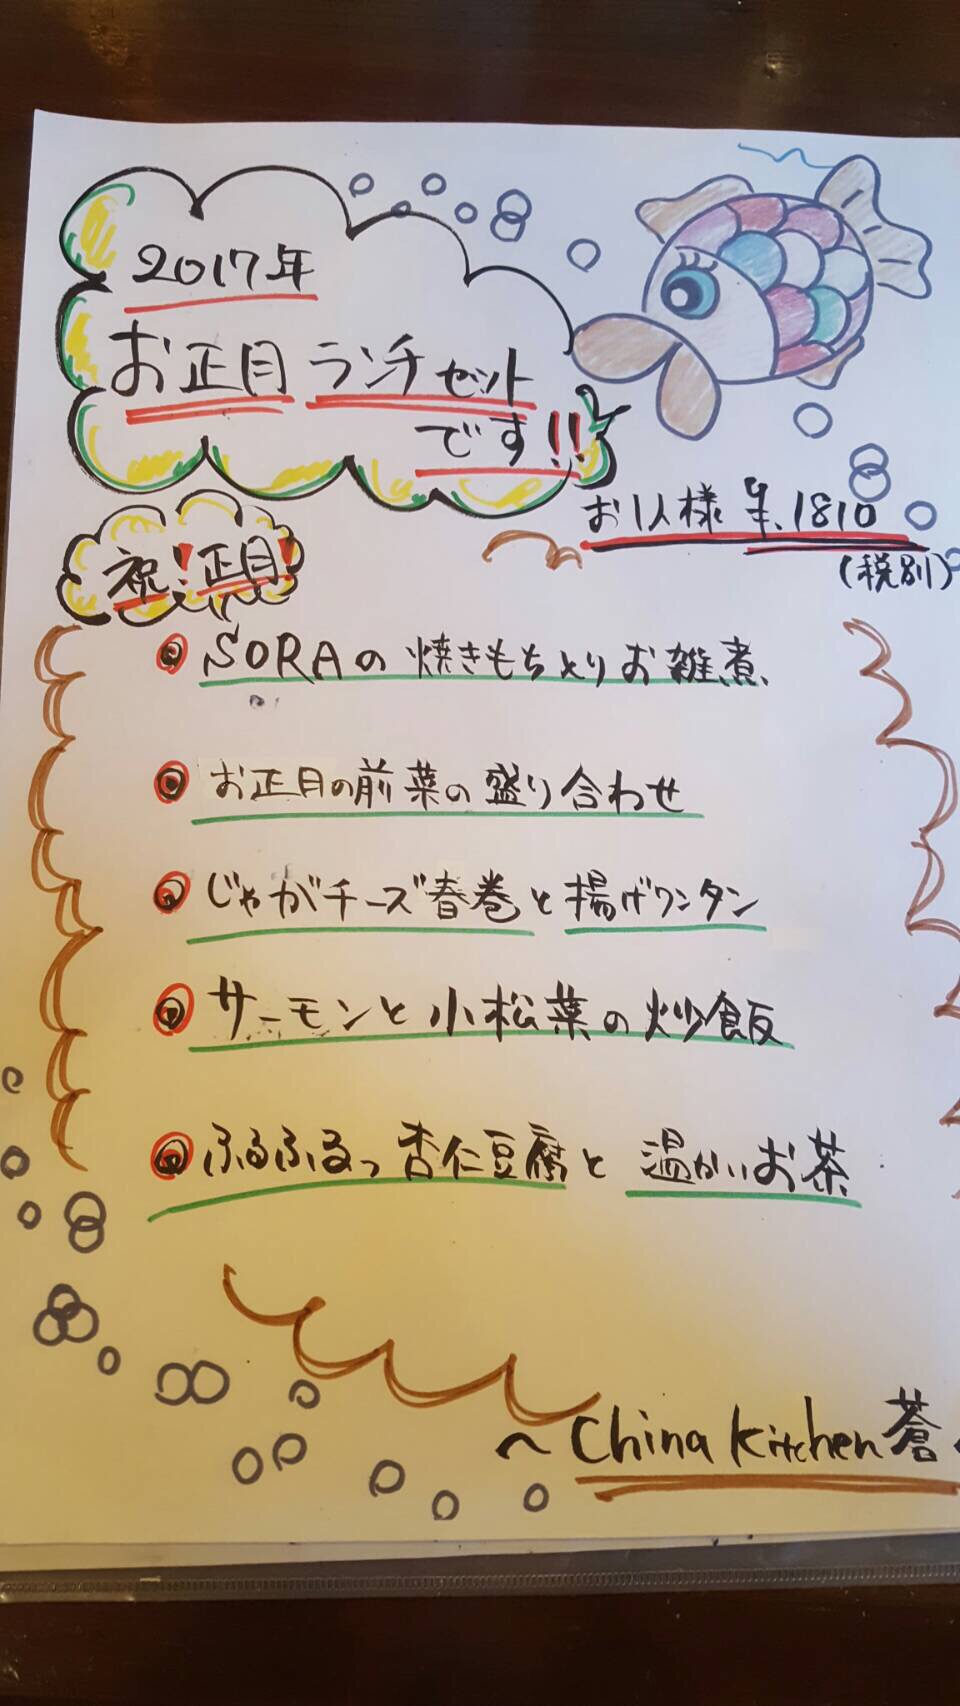 2017年
お正月ランチセット
です!!
お1人様 ¥.1810
(税別)
祝!正月!
SORAの焼きもちとりお雑煮
お正月の前菜の盛り合わせ
じゃがチーズ春巻と揚げワンタン
サーモンと小松菜の炒飯
ふるふるっ杏仁豆腐と温かいお茶
～China Kitchen蒼